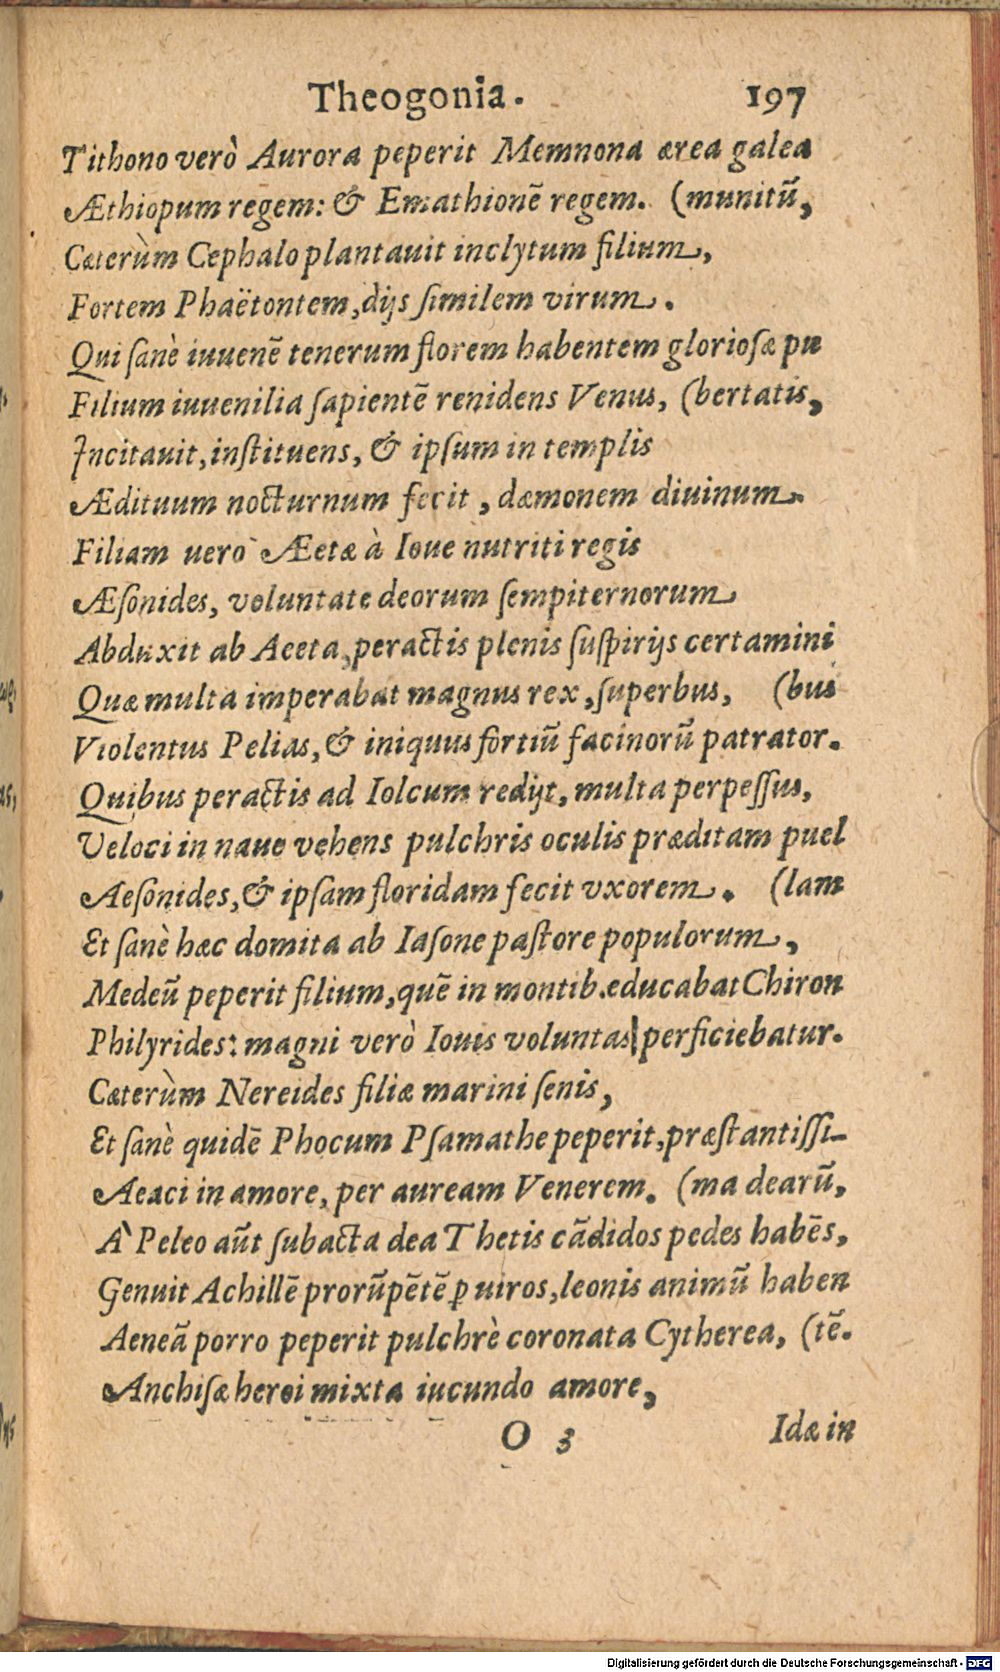 Theogonia. 197
Tithono verò Aurora peperit Memnona ærea galea
Æthiopum regem: & Emathionē regem. (munitū,
Cæterùm Cephalo plantauit inclytum filium,
Fortem Phaëtontem, dijs ſimilem virum.
Qui ſanè iuuenē tenerum florem habentem glorioſæ pu
Filium iuuenilia ſapientē renidens Venus, (bertatis,
Incitauit, inſtituens, & ipſum in templis
Ædituum nocturnum fecit, dæmonem diuinum.
Filiam uerò Æetæ à Ioue nutriti regis
Æſonides, voluntate deorum ſempiternorum
Abduxit ab Aeeta, peractis plenis ſuſpirijs certamini
Quæ multa imperabat magnus rex, ſuperbus, (bus
Violentus Pelias, & iniquus fortiū facinorū patrator.
Quibus peractis ad Iolcum redijt, multa perpeſſus,
Veloci in naue vehens pulchris oculis præditam puel
Aeſonides, & ipſam floridam fecit vxorem. (lam
Et ſanè hæc domita ab Iaſone paſtore populorum,
Medeū peperit filium, quē in montib. educabat Chiron
Philyrides: magni verò Iouis voluntas perficiebatur.
Cæterùm Nereides filiæ marini ſenis,
Et ſanè quidē Phocum Pſamathe peperit, præſtantiſſi-
Aeaci in amore, per auream Venerem. (ma dearū,
A' Peleo aūt ſubacta dea Thetis cādidos pedes habēs,
Genuit Achillē prorūpētē ꝑ uiros, leonis animū haben
Aeneā porro peperit pulchrè coronata Cytherea, (tē.
Anchiſæ heroi mixta iucundo amore,
O 3 Idæ in
Digitalisierung gefördert durch die Deutsche Forschungsgemeinschaft - DFG